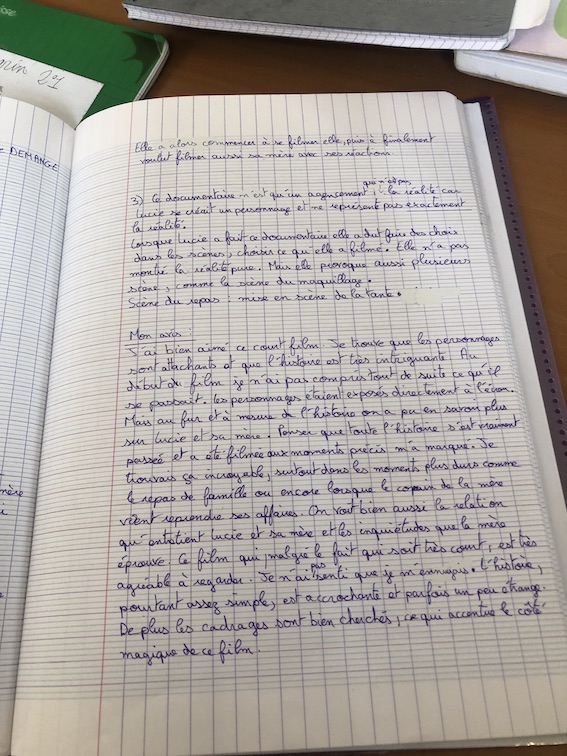 rin 21
DEMANGE
mère
Elle a alors commencer à se filmer elle, puis à finalement
voulut filmer aussi sa mère avec ses réactions.
3) Ce documentaire n'est qu'un agencement, qui n'est pas la réalité car
Lucie se créait un personnage et ne représent pas exactement
la réalité.
Lorsque Lucie a fait ce documentaire elle a dut faire des choix
dans les scènes, choisir ce qu'elle a filmé. Elle n'a pas
montré la réalité pure. Mais elle provoque aussi plusieurs
scène, comme la scène du maquillage.
Scène du repas : mise en scène de la tante.
Mon avis :
J'ai bien aimé ce court film. Je trouve que les personnages
sont attachants et que l'histoire est très intriguante. Au
début du film je n'ai pas compris tout de suite ce qu'il
se passait. les personnages étaient exposés directement à l'écran.
Mais au fur et à mesure de l'histoire on a pu en savoir plus
sur Lucie et sa mère. Penser que toute l'histoire s'est vraiment
passée et a été filmée aux moments précis m'a marqué. Je
trouvais ça incroyable, surtout dans les moments plus durs comme
le repas de famille ou encore lorsque le copain de la mère
vient reprendre ses affaires. On voit bien aussi la relation
qu'entretient Lucie et sa mère et les inquiétudes que la mère
éprouve. Ce film qui, malgré le fait que soit très court, est très
agréable à regarder. Je n'ai pas senti que je m'ennuyais. L'histoire,
pourtant assez simple, est accrochante et parfois un peu étrange.
De plus les cadrages sont bien cherchés, ce qui accentue le côté
magique de ce film.